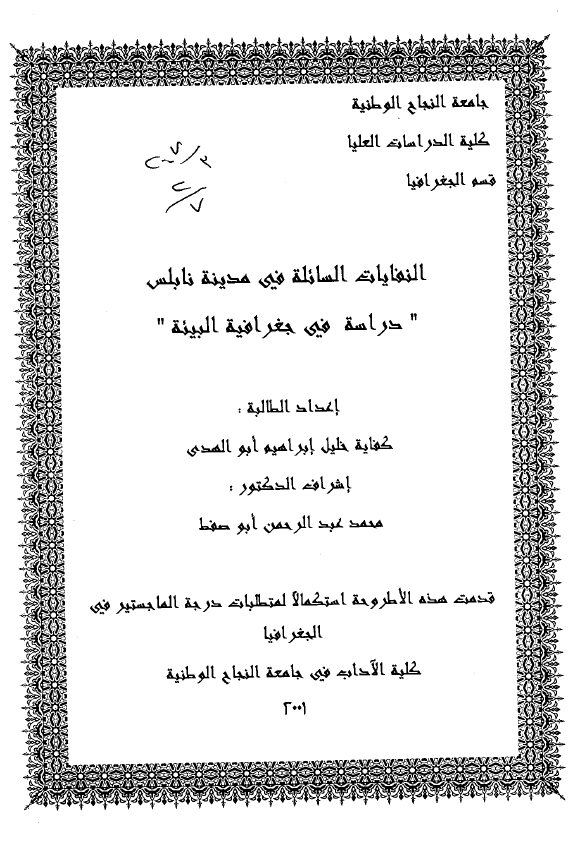 جامعة النجاح الوطنية
كلية الدراسات العليا
قسم الجغرافيا
النفايات السائلة في مدينة نابلس
" دراسة في جغرافية البيئة "
إعداد الطالبة :
كفاية خليل إبراهيم أبو الهدى
إشراف الدكتور :
محمد عبد الرحمن أبو صفط
قدمت هذه الأطروحة استكمالا لمتطلبات درجة الماجستير في
الجغرافيا
كلية الآداب في جامعة النجاح الوطنية
٢٠٠١